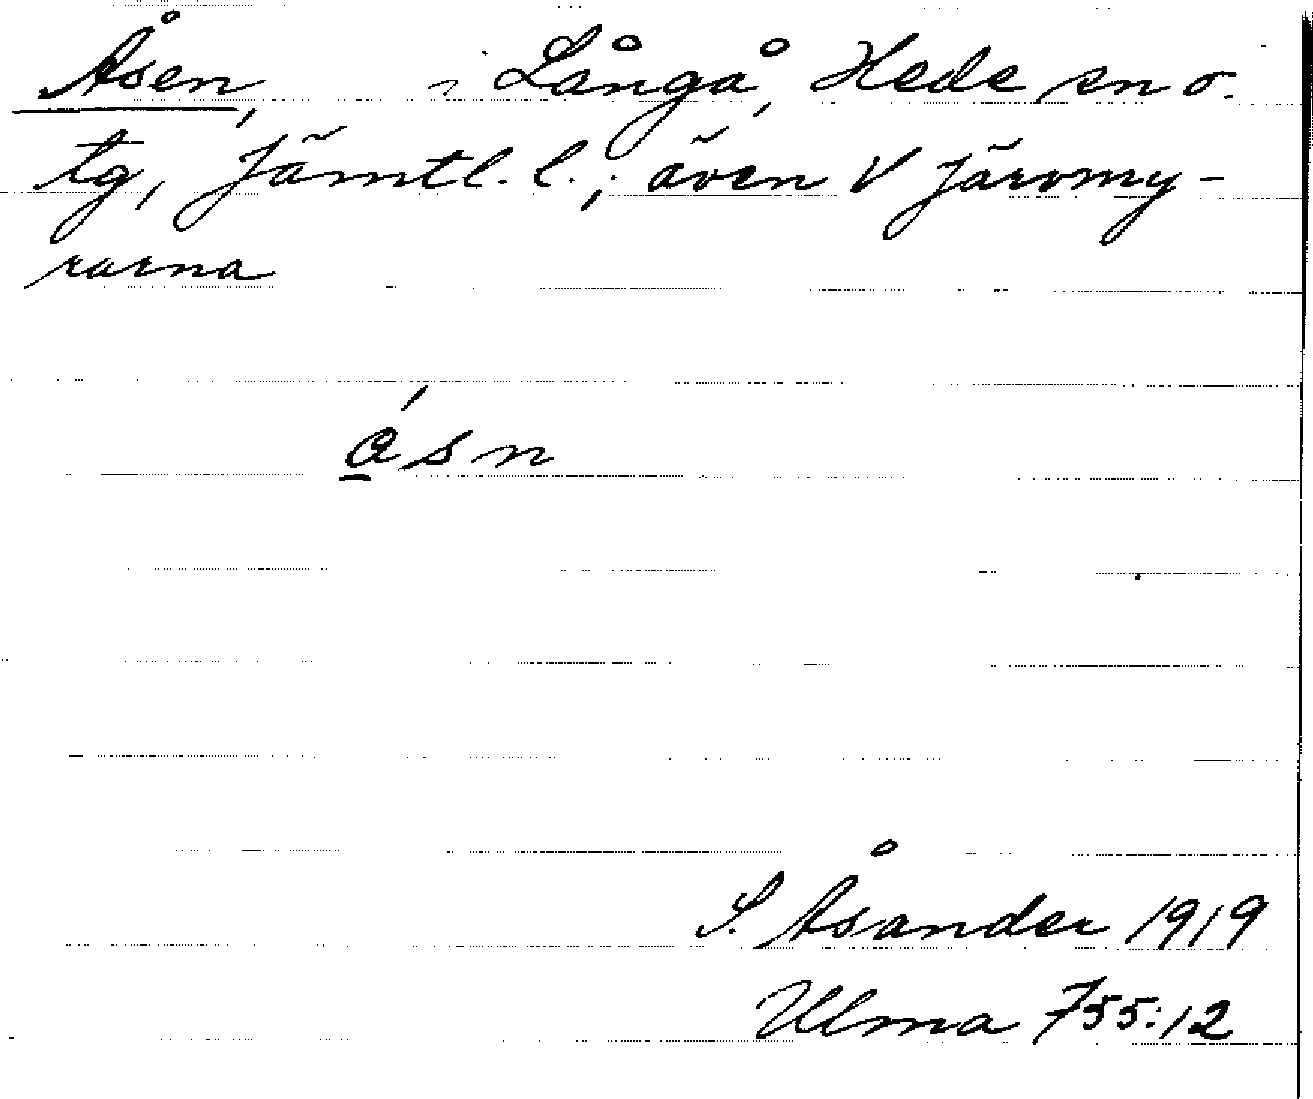 Åsen, i Långå, Hede sn o.
tg, Jämtl. l.; även V Järvmy-
rarna
á̱sn
S. Åsander 1919
Ulma 755:12